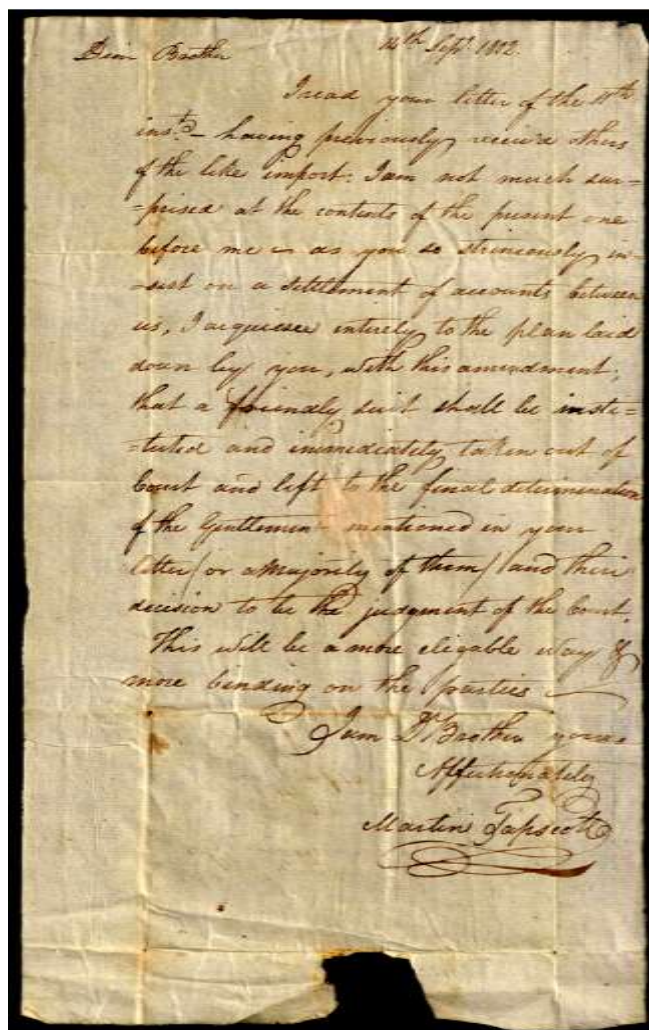 Dear Brother 14th Sept. 1802.
I read your letter of the 11th
inst. – having previously receivd others
of the like import: I am not much sur=
=prised at the contents of the present one
before me – as you so strenuously in-
-sist on a settlement of accounts between
us, I acquiesce entirely to the plan laid
down by you, with this amendment,
that a friendly suit shall be insti=
=tuted and immediately taken out of
Court and left to the final determination
of the Gentlemen mentioned in your
letter (or a Majority of them) and their
decision to be the judgment of the Court.
This will be a more eligable way &
more binding on the parties –
I am Dr. Brother yours
Affectionately
Martin Tapscott